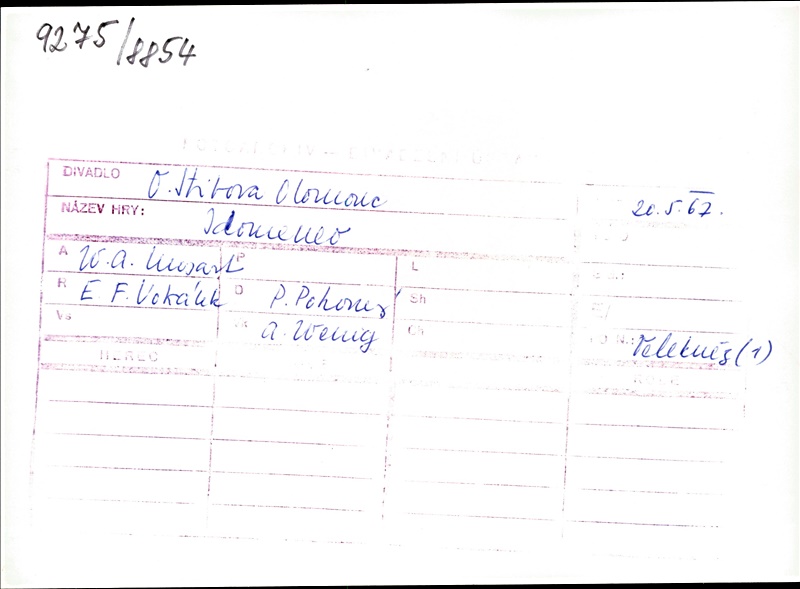 9275/8854
DIVADLO O. Stibora Olomouc
20.5.67.
NÁZEV HRY: Idomeneo
A W. A. Mozart P L
R E. F. Vokálek D P. Pokorný Sh
Vs A. Wenig Ch
Telekněs (1)
HEREC